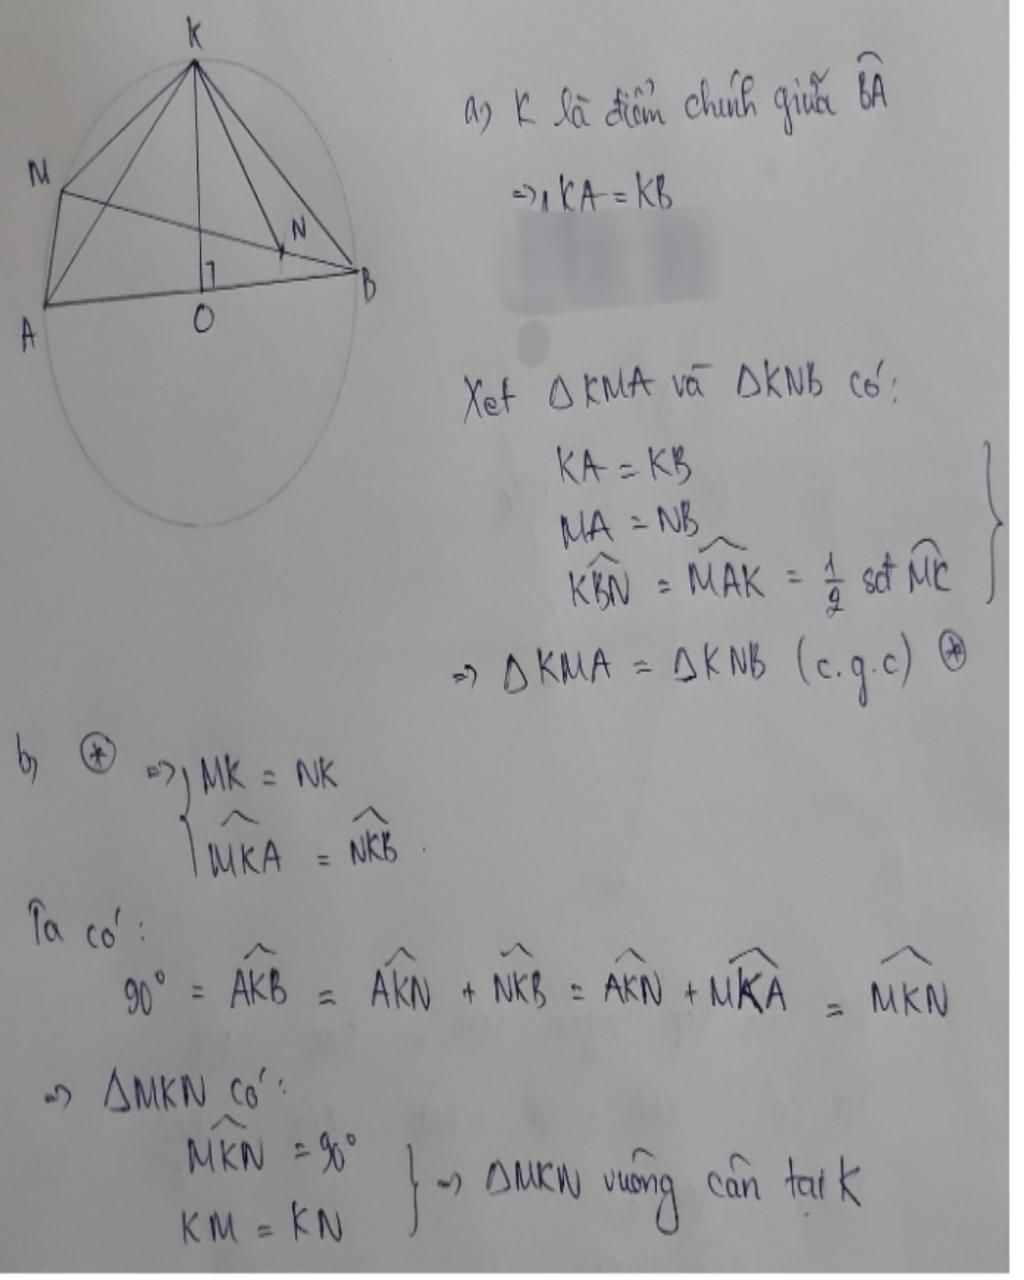 K
M
N
B
A
O
a) K là điểm chính giữa \widehat{BA}
=> KA = KB
Xet Δ KMA và ΔKNB có:
KA = KB
MA = NB
\widehat{KBN} = \widehat{MAK} = \frac{1}{2} sđ \widehat{MK}
=> Δ KMA = Δ KNB (c.g.c) (*)
b) (*) => MK = NK
\widehat{MKA} = \widehat{NKB}.
Ta có:
90° = \widehat{AKB} = \widehat{AKN} + \widehat{NKB} = \widehat{AKN} + \widehat{MKA} = \widehat{MKN}
=> ΔMKN có:
\widehat{MKN} = 90°
KM = KN } => ΔMKN vuông cân tại K